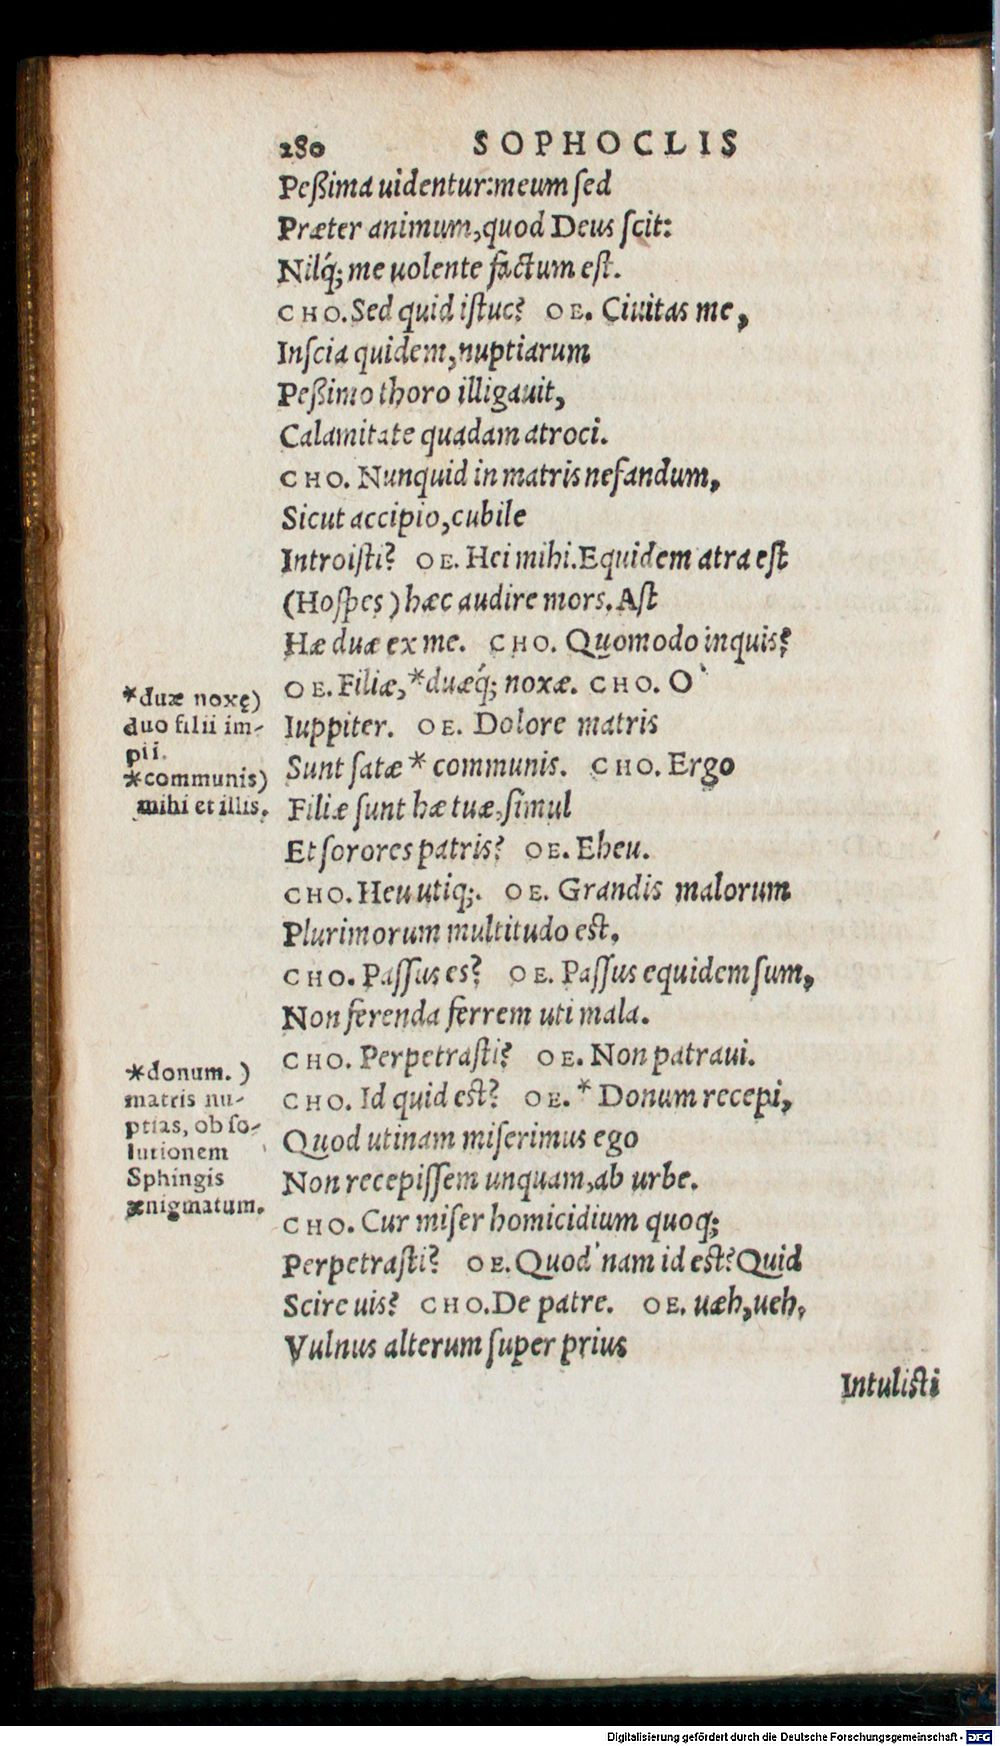 280 SOPHOCLIS
Peßima uidentur:meum ſed
Præter animum,quod Deus ſcit:
Nilq́; me uolente factum eſt.
CHO.Sed quid iſtuc? OE. Ciuitas me,
Inſcia quidem,nuptiarum
Peßimo thoro illigauit,
Calamitate quadam atroci.
CHO. Nunquid in matris nefandum,
Sicut accipio,cubile
Introiſti? OE. Hei mihi.Equidem atra eſt
(Hoſpes) hæc audire mors. Aſt
Hæ duæ ex me. CHO. Quomodo inquis?
OE. Filiæ,*duæq́; noxæ. CHO. O
Iuppiter. OE. Dolore matris
Sunt ſatæ * communis. CHO. Ergo
Filiæ ſunt hæ tuæ,ſimul
Et ſorores patris? OE. Eheu.
CHO. Heu utiq;. OE. Grandis malorum
Plurimorum multitudo est.
CHO. Paſſus es? OE. Paſſus equidem ſum,
Non ferenda ferrem uti mala.
CHO. Perpetraſti? OE. Non patraui.
CHO. Id quid est? OE. * Donum recepi,
Quod utinam miſerimus ego
Non recepiſſem unquam,ab urbe.
CHO. Cur miſer homicidium quoq;
Perpetraſti? OE. Quod nam id est? Quid
Scire uis? CHO.De patre. OE. uæh,ueh,
Vulnus alterum ſuper prius
Intulisti
*duæ noxę)
duo filii im-
pii.
*communis)
mihi et illis.
*donum. )
matris nu-
ptias, ob ſo-
lutionem
Sphingis
ænigmatum.
Digitalisierung gefördert durch die Deutsche Forschungsgemeinschaft - DFG